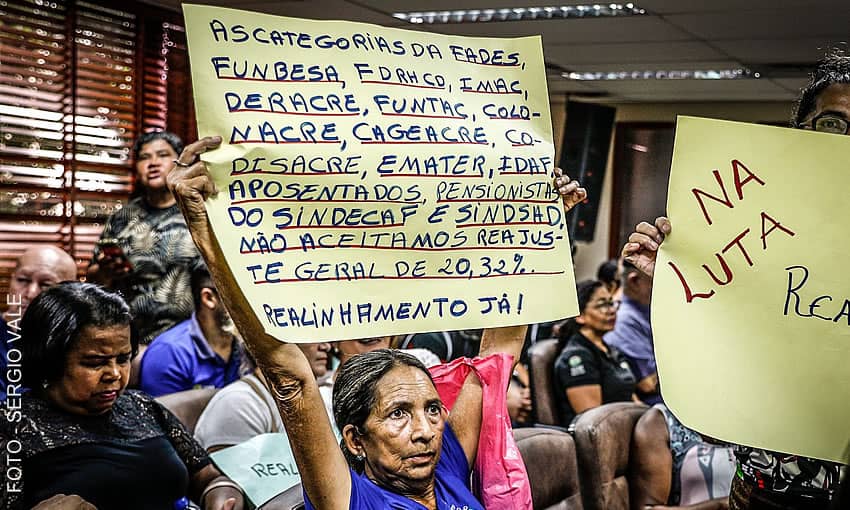 AS CATEGORIAS DA FADES,
FUNBESA, FDRHCD, IMAC,
DERACRE, FUNTAC, COLO-
NACRE, CAGEACRE, CO-
DISACRE, EMATER, IDAF
APOSENTADOS, PENSIONISTAS
DO SINDECAF E SINDSAD,
NÃO ACEITAMOS REAJUS-
TE GERAL DE 20,32%.
REALINHAMENTO JÁ!
NA
LUTA
REA
REAL
FOTO - SERGIO VALE